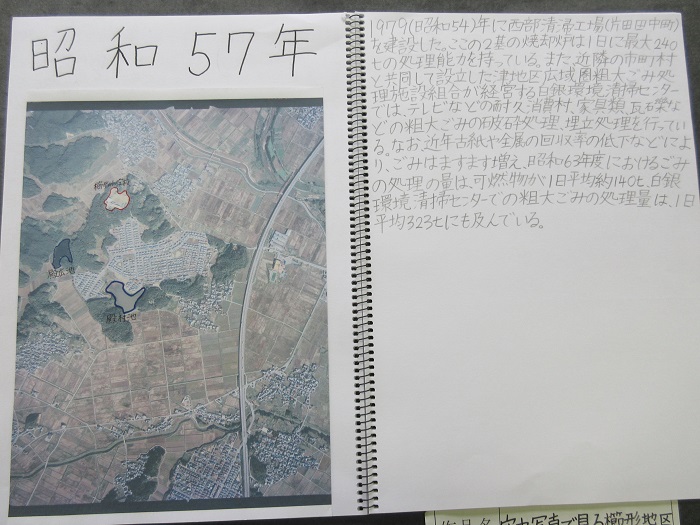 昭和57年
1979(昭和54)年に西部清掃工場(片田田中町)
を建設した。ここの2基の焼却炉は1日に最大240
tの処理能力を持っている。また、近隣の市町村
と共同して設立した津地区広域圏粗大ごみ処
理施設組合が経営する白銀環境清掃センター
では、テレビなどの耐久消費材、家具類、瓦礫な
どの粗大ごみの破砕処理、埋立処理を行ってい
る。なお、近年古紙や金属の回収率の低下などによ
り、ごみはますます増え、昭和63年度におけるごみ
の処理の量は、可燃物が1日平均約140t、白銀
環境清掃センターでの粗大ごみの処理量は、1日
平均323tにも及んでいる。
殿村池
作品名 空中写真で見る櫛形地区